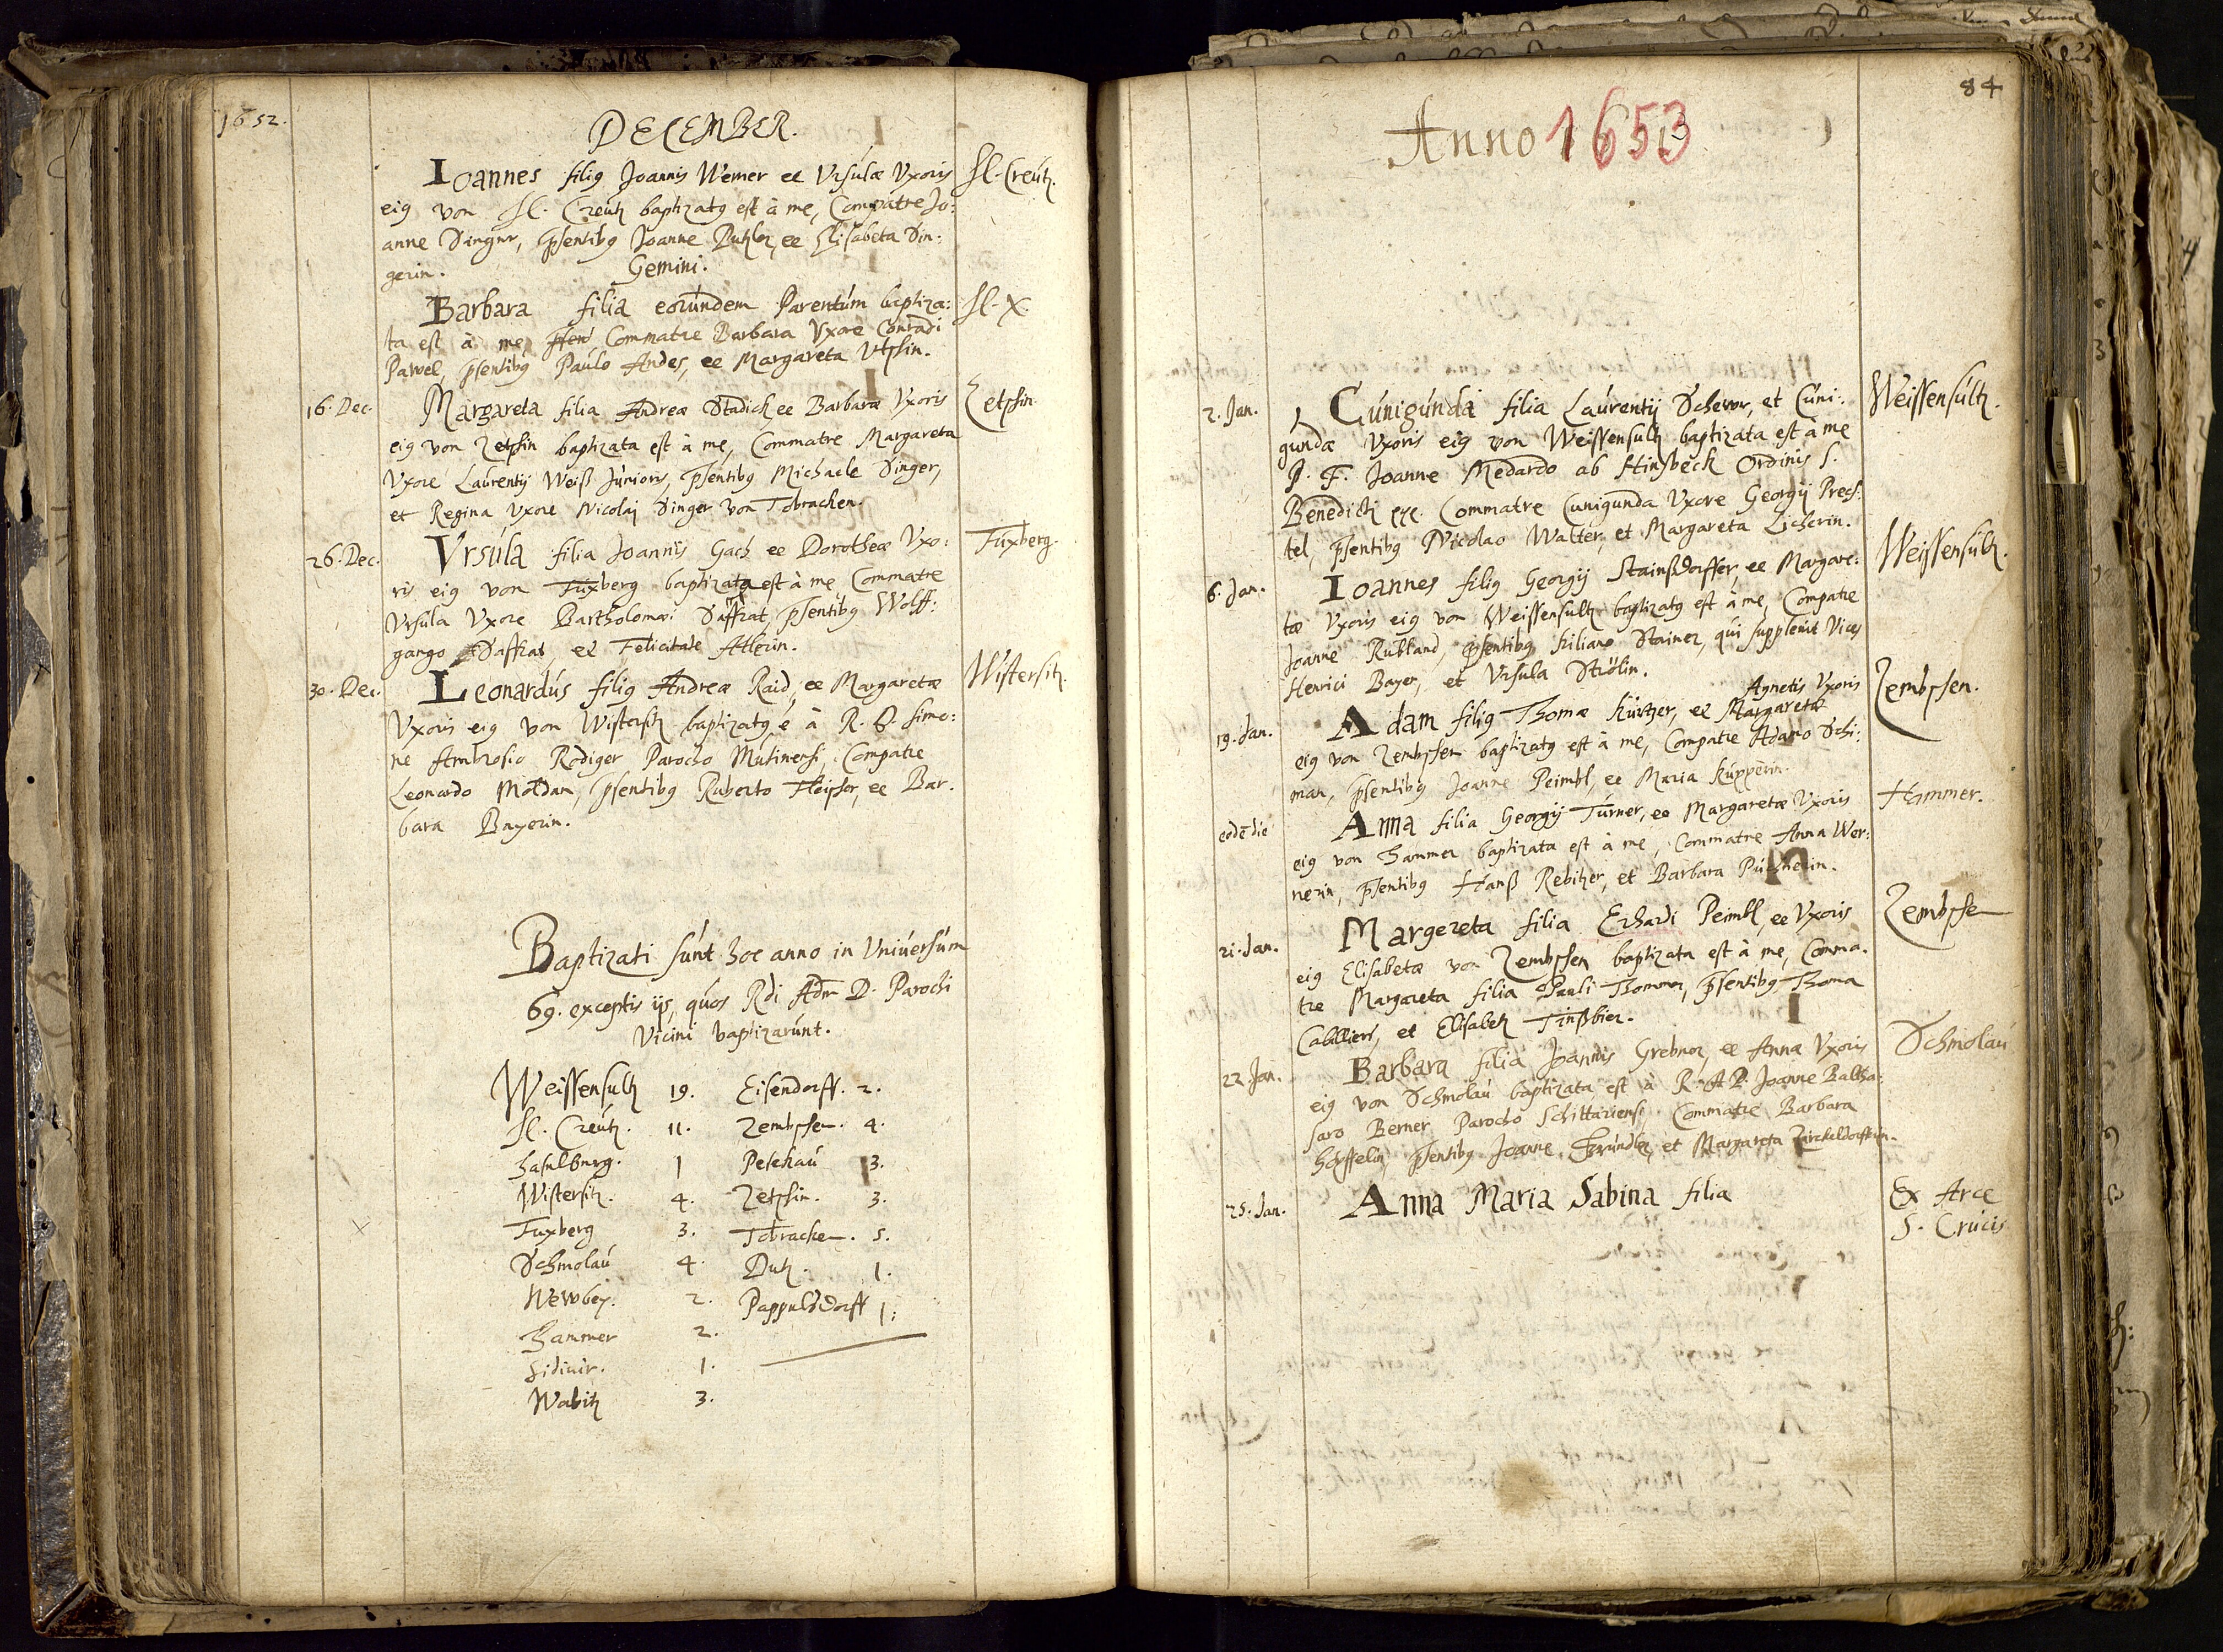 1652.
DECEMBER.
Ioannes filiꝰ Joannis Werner et Ursulæ Uxoris
Hl. Creutz.
eiꝰ von Hl. Creutz baptizatꝰ est à me, Compatre Jo:
anne Singer, p̄sentibꝰ Joanne Putzler, et Elisabeta Sin:
gerin. Gemini.
Barbara filia eorundem Parentum baptiza:
Hl. X.
ta est à me, Commatre Barbara Uxore Conradi
Pawel, p̄sentibꝰ Paulo Andes, et Margareta
16. Dec.
Margareta filia Andreæ Stadick et Barbaræ Uxoris
Zetschin
eiꝰ von Zetschin baptizata est à me, Commatre Margareta
Uxore Laurentij Weiß Junioris, p̄sentibꝰ Michaele Singer,
et Regina Uxore Nicolaj Singer von Tobrachen.
26. Dec.
Ursula filia Joannis Gach et Dorotheæ Uxo:
Fuxberg.
ris eiꝰ von Fuxberg baptizata est à me Commatre
Ursula Uxore Bartholomæi Saffrat, p̄sentibꝰ Wolff:
gango Saffrat, et Felicitate Adlerin.
30. Dec.
Leonardus filiꝰ Andreæ Raid, et Margaretæ
Wistersitz.
Uxoris eiꝰ von Wistersitz baptizatꝰ e à R. D. Simo:
ne Ambrosio Rödiger Parocho Mutinensi, Compatre
Leonardo Moldan, p̄sentibꝰ Ruberto Fleischer, et Bar.
bara Bayerin.
Baptizati sunt hoc anno in Universum
69. exceptis ijs, quos Rdi Adm D. Parochi
Vicini baptizarunt.
Weissensultz 19. Eisendorff. 2.
Hl. Creutz. 11. Zembschen. 4.
Haselburg. 1 Peschau 3.
Wistersitz. 4. Zetschin. 3.
Fuxberg 3. Tobrachen. 5.
Schmolau 4. Dutz. 1.
Newbey. 2. Pappulsdorff 1:
Hammer 2.
Sidiuir. 1.
Wabitz 3.
84
Anno 1653
2. Jan.
Cunigunda filia Laurentij Schever, et Cuni:
Weissensultz.
gundæ Uxoris eiꝰ von Weissensultz baptizata est à me
P. F. Joanne Medardo ab Hinsbeck Ordinis S.
Benedicti etc. Commatre Cunigunda Uxore Georgij Pres:
tel, p̄sentibꝰ Nicolao Walter, et Margareta Licherin.
6. Jan.
Ioannes filiꝰ Georgij Stainßdorffer, et Margare:
Weissensultz.
tæ Uxoris eiꝰ von Weissensultz baptizatꝰ est à me, Compatre
Joanne Rubland, p̄sentibꝰ Kiliano Stainer, qui supplevit Vices
Henrici Bayer, et Ursula Strölin.
Agnetis Uxoris
19. Jan.
Adam filiꝰ Thomæ Kürtzer, et Margaretæ
Zembschen.
eiꝰ von Zembschen baptizatꝰ est à me, Compatre Adamo Schi:
man, p̄sentibꝰ Joanne Peimbl, et Maria Küpperin.
eodē die
Anna filia Georgij Turner, et Margaretæ Uxoris
Hammer.
eiꝰ von Hammer baptizata est à me, Commatre Anna Wer:
nerin, p̄sentibꝰ Hanß Rebitzer, et Barbara Püchnerin.
21. Jan.
Margereta filia Erhardi Peimbl, et Uxoris
Zembschen
eiꝰ Elisabetæ von Zembschen baptizata est à me, Comma.
tre Margareta filia Pauli Thommen, p̄sentibꝰ Thoma
Caballieri, et Elisabetz Tinßbier.
22. Jan.
Barbara filia Joannis Grebner et Annæ Uxoris
Schmolau
eiꝰ von Schmolau baptizata est à R. A. D. Joanne Baltha:
saro Berner Parocho Schittariensi, Commatre Barbara
Höpffelin, p̄sentibꝰ Joanne Gründler, et Margareta Zirckeldorfferin.
25. Jan.
Anna Maria Sabina filia
Ex Arce
S. Crucis